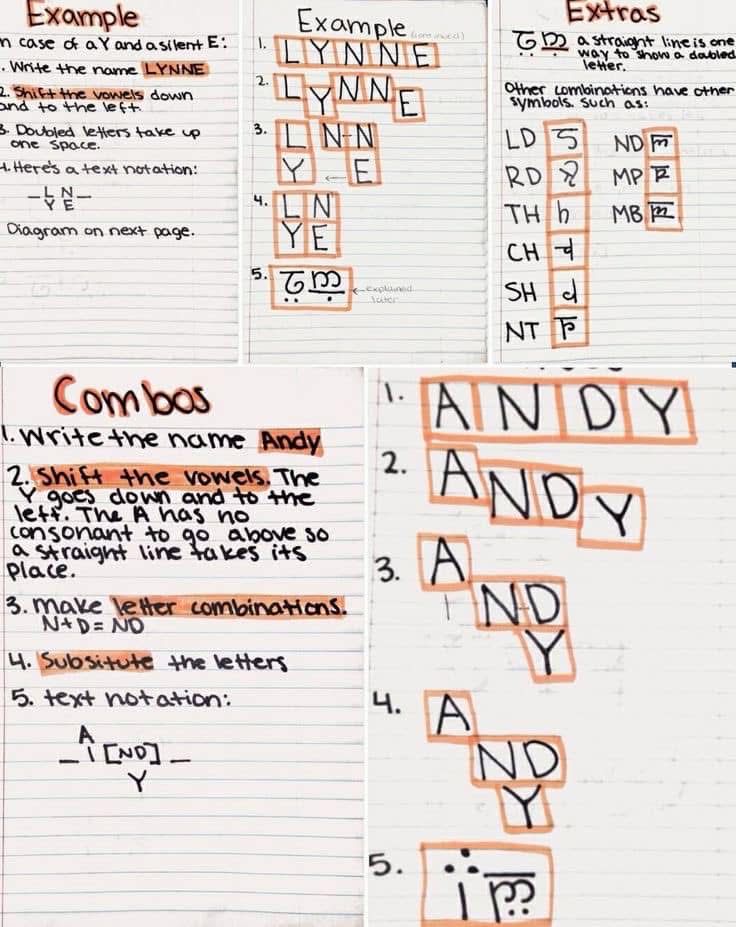 Example
n case of a Y and a silent E:
. Write the name LYNNE
2. Shift the vowels down
and to the left.
3. Doubled letters take up
one space.
4. Here's a text notation:
- L N -
Y E
Diagram on next page.
Example (continued)
1. L Y N N E
2. L Y N N E
3. L N-N
Y ← E
4. L N
Y E
5.
← explained
later
Extras
a straight line is one
way to show a doubled
letter.
Other combinations have other
symbols. Such as:
LD ND
RD MP
TH MB
CH
SH
NT
Combos
1. Write the name Andy
2. Shift the vowels. The
Y goes down and to the
left. The A has no
consonant to go above so
a straight line takes its
place.
3. make letter combinations.
N+D= ND
4. Subsitute the letters
5. text notation:
A
_ I [ND] _
Y
1. A N D Y
2. A N D Y
3. A
I N-D
Y
4. A
ND
Y
5.